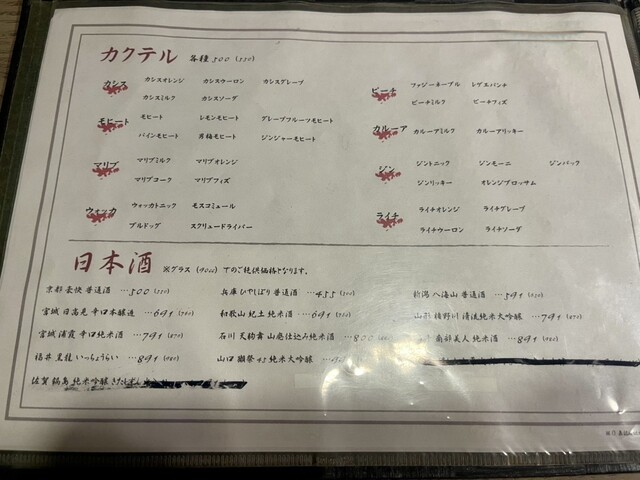 カクテル 各種 500 (550)
カシス カシスオレンジ カシスウーロン カシスグレープ
カシスミルク カシスソーダ
モヒート モヒート レモンモヒート グレープフルーツモヒート
パインモヒート 男梅モヒート ジンジャーモヒート
マリブ マリブミルク マリブオレンジ
マリブコーク マリブフィズ
ウォッカ ウォッカトニック モスコミュール
ブルドッグ スクリュードライバー
ピーチ ファジーネーブル レゲエパンチ
ピーチミルク ピーチフィズ
カルーア カルーアミルク カルーアリッキー
ジン ジントニック ジンモーニ ジンバック
ジンリッキー オレンジブロッサム
ライチ ライチオレンジ ライチグレープ
ライチウーロン ライチソーダ
日本酒 ※グラス (90cc) での ご提供価格となります。
京都 豪快 普通酒 …500 (550)
宮城 日高見 辛口本醸造 …691 (760)
宮城 浦霞 辛口純米酒 …791 (870)
福井 黒龍 いっちょらい …891 (980)
佐賀 鍋島 純米吟醸
兵庫 ひやしぼり 普通酒 …455 (500)
和歌山 紀土 純米酒 …691 (760)
石川 天狗舞 山廃仕込み純米酒 …800
山口 獺祭 45 純米大吟醸
新潟 八海山 普通酒 …591
山形 純米大吟醸 …791 (870)
南部美人 純米酒 …891 (980)